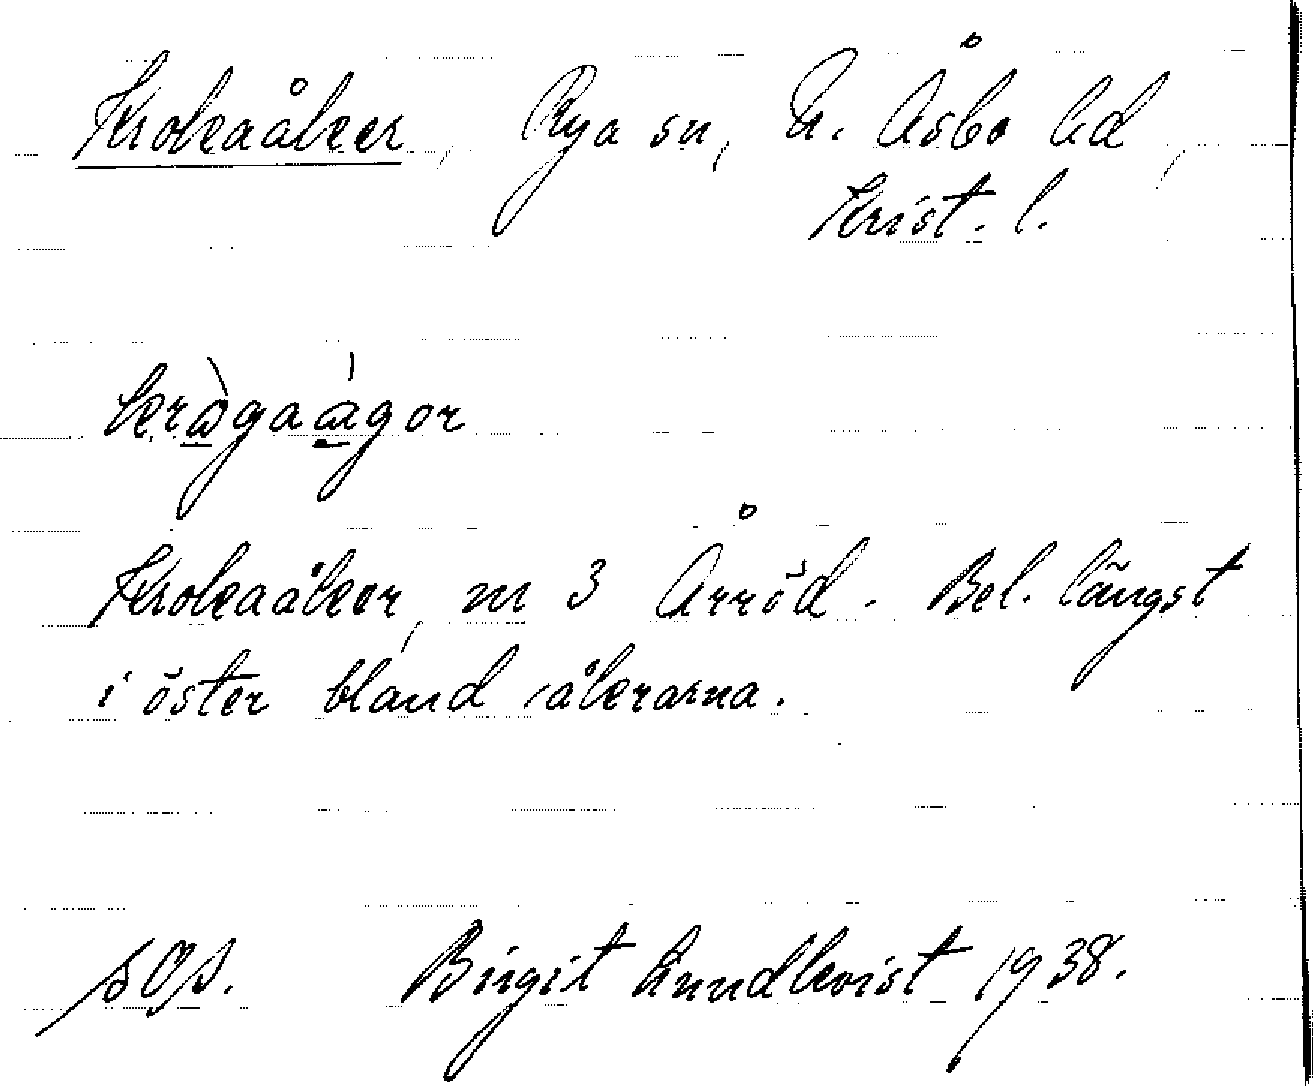 Krokaåker, Rya sn, N. Åsbo hd,
Krist. l.
kràgaágor
Krokaåker, nr 3 Årröd. Bel. längst
i öster bland åkrarna.
Birgit Lundkvist 1938.